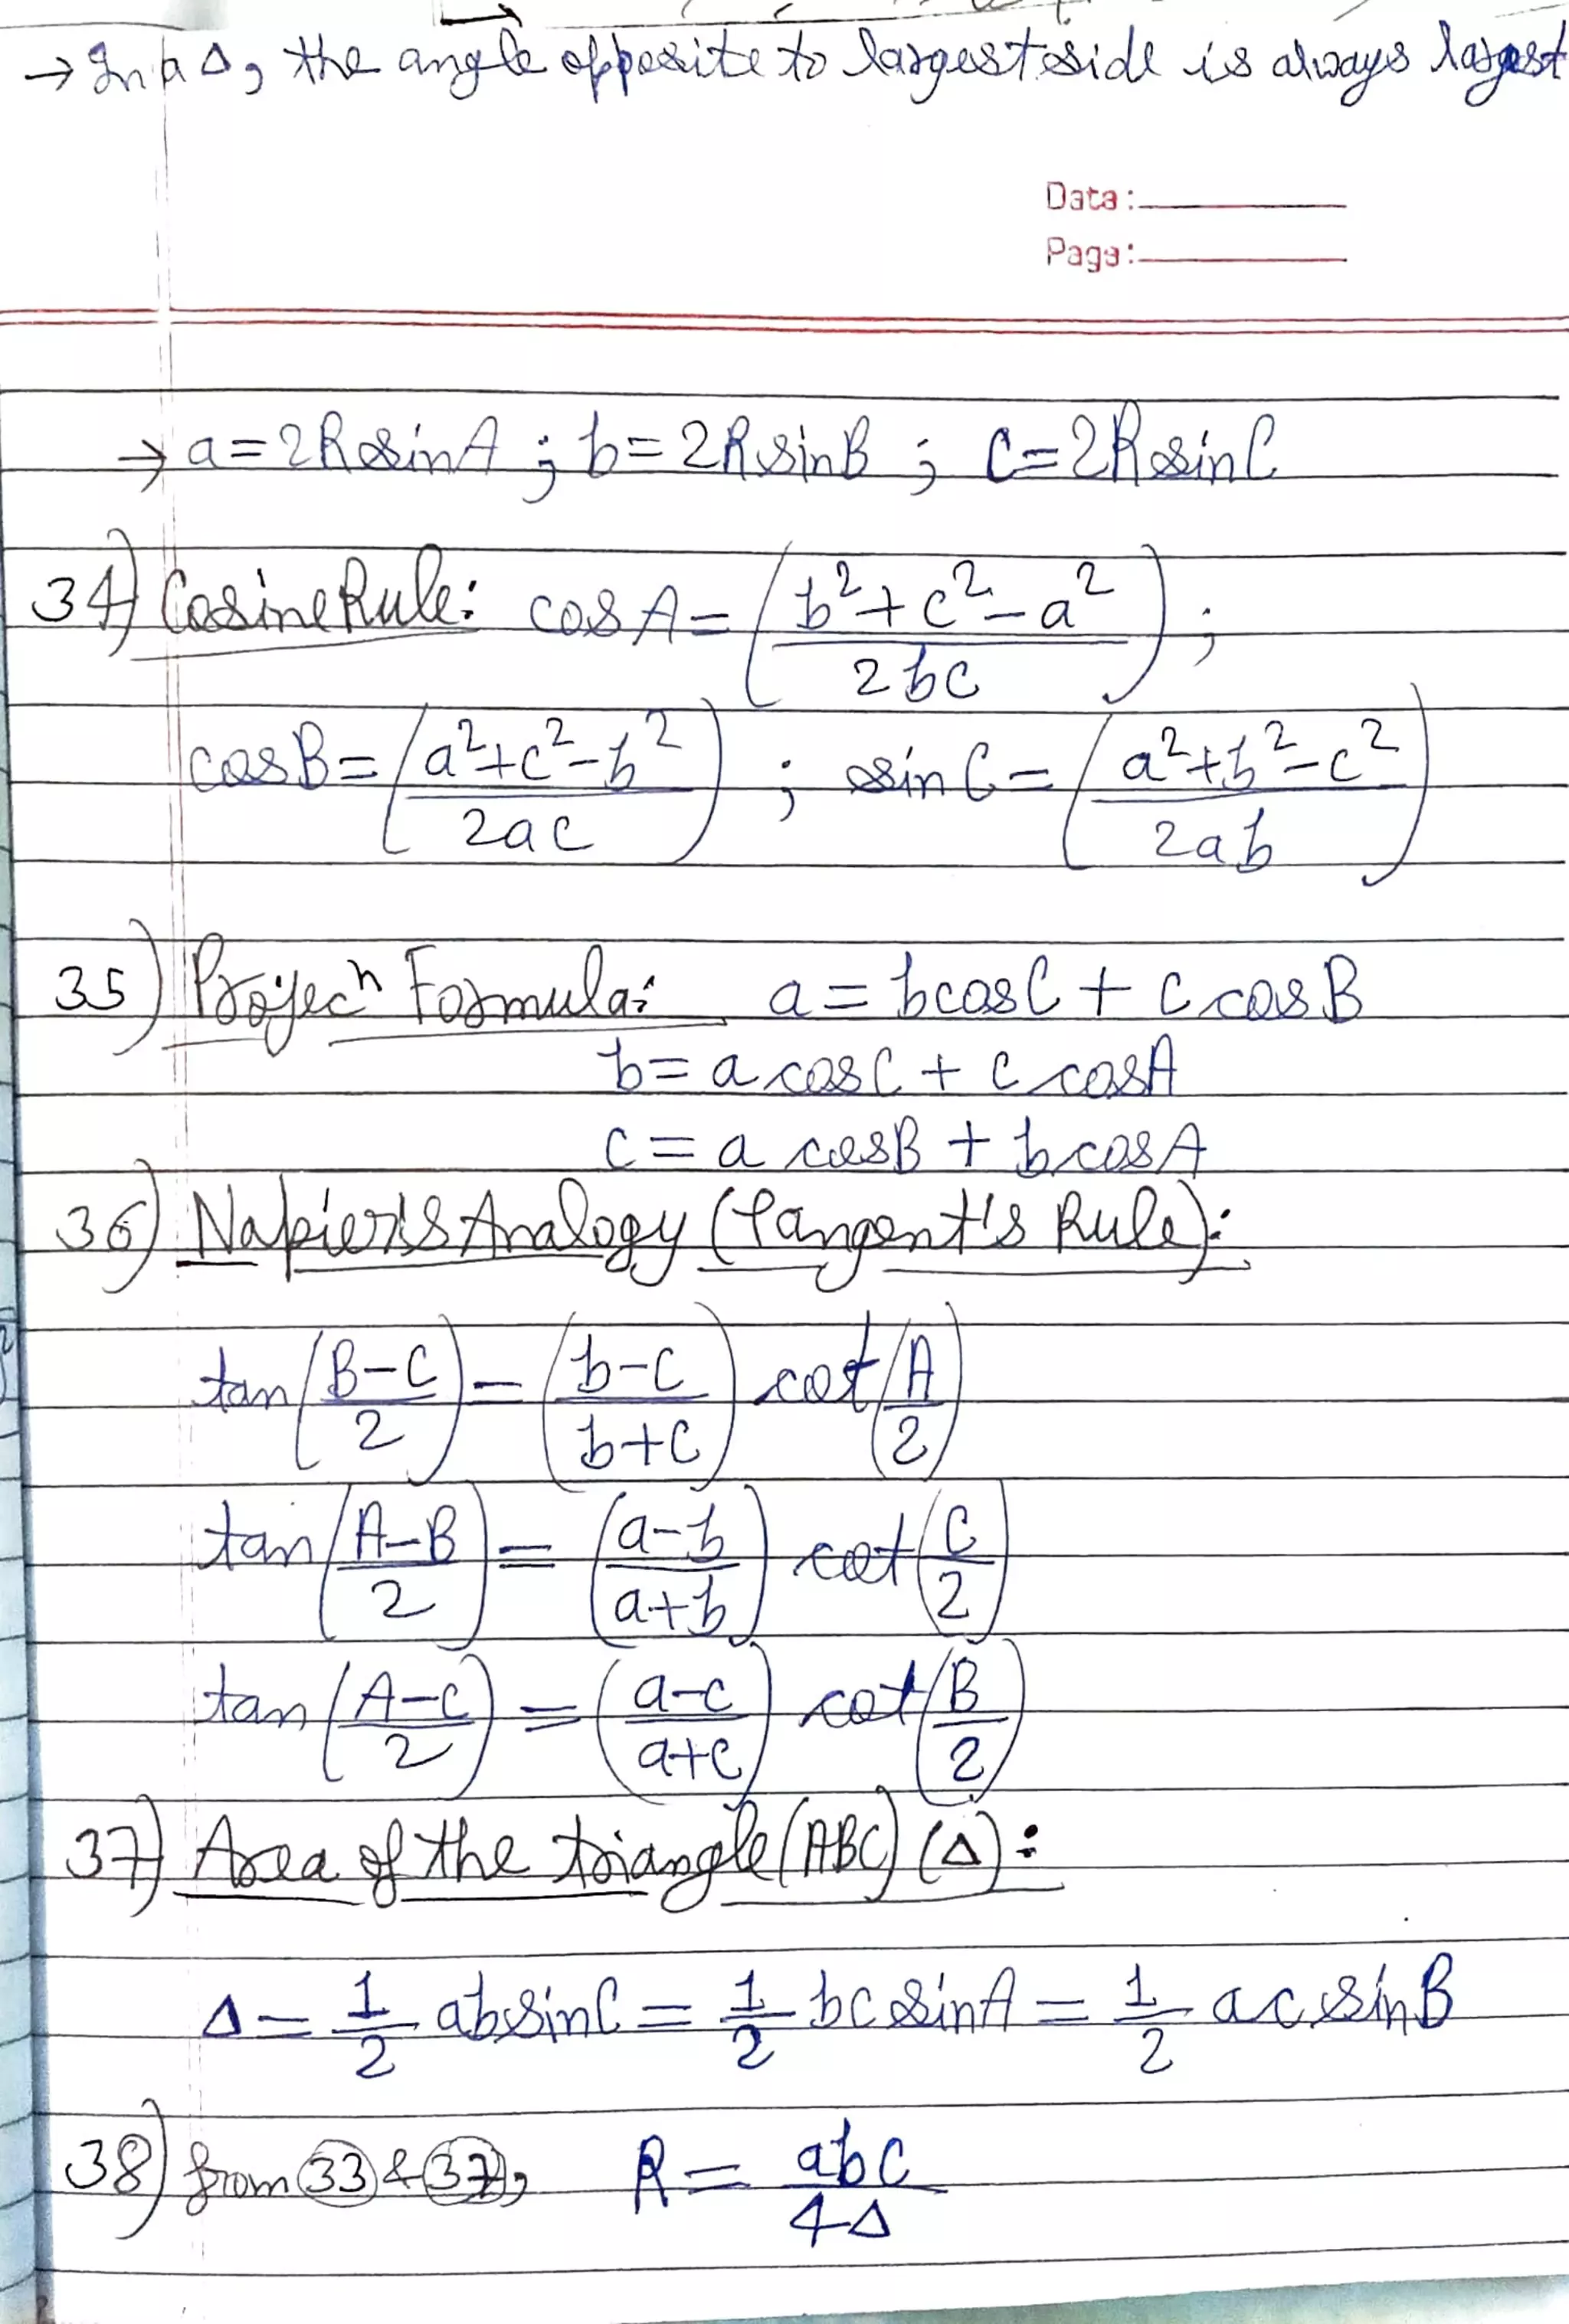 → In a Δ, the angle opposite to largest side is always largest
Data:
Page:
→ a=2RsinA ; b=2RsinB ; c=2RsinC
34) Cosine Rule: cosA = (b²+c²-a² / 2bc) ;
cosB = (a²+c²-b² / 2ac) ; sinC = (a²+b²-c² / 2ab)
35) Projecⁿ Formula: a = bcosC + c cosB
b = a cosC + c cosA
c = a cosB + b cosA
36) Napier's Analogy (Tangent's Rule):
tan(B-C / 2) = (b-c / b+c) cot(A/2)
tan(A-B / 2) = (a-b / a+b) cot(C/2)
tan(A-C / 2) = (a-c / a+c) cot(B/2)
37) Area of the triangle (ABC) (Δ):
Δ = 1/2 absinC = 1/2 bcsinA = 1/2 acsinB
38) from 33 & 37, R = abc / 4Δ